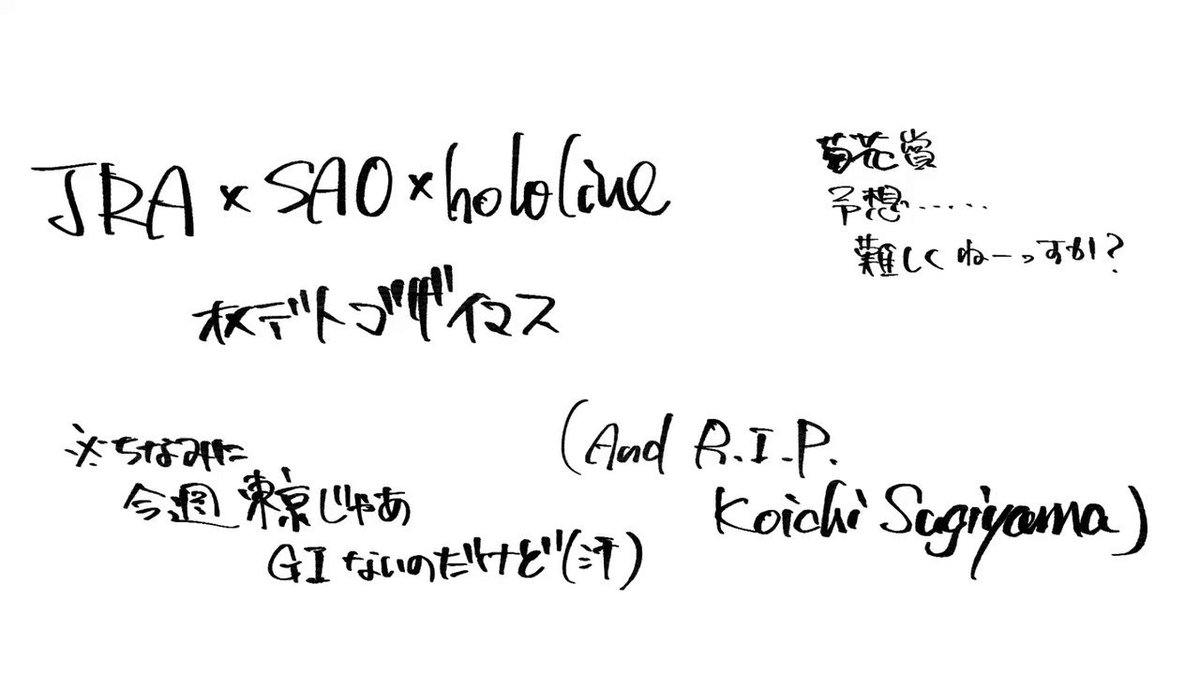 JRA×SAO×hololive
枚デトゴザイマス
菊花賞
予想……
難しくねーっすか?
※ちなみに
今週東京じゃあ
GIないのだけど(汗)
(And R.I.P.
Koichi Sugiyama)